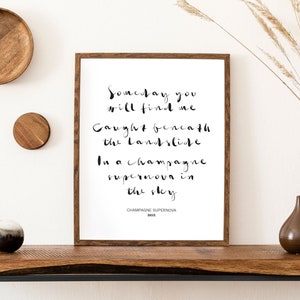 Someday you
will find me
Caught beneath
the landslide
In a champagne
supernova in
the sky
CHAMPAGNE SUPERNOVA
OASIS